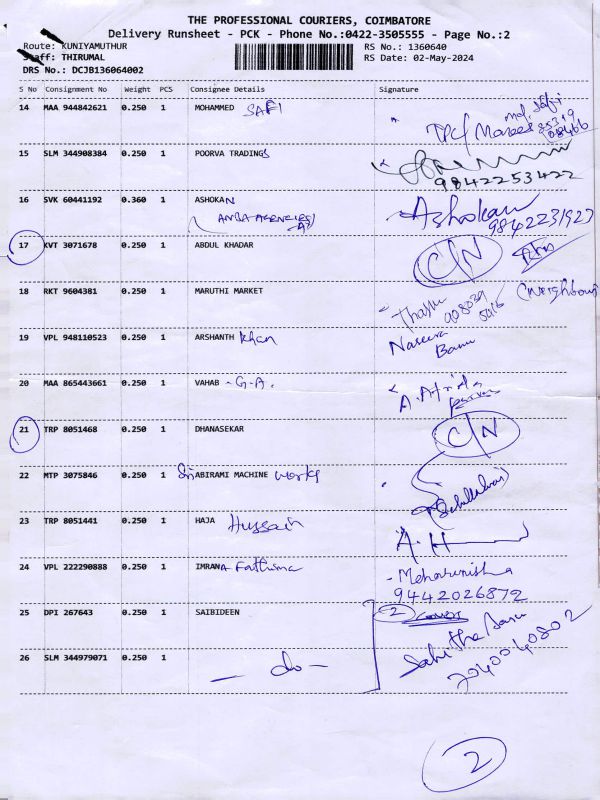 THE PROFESSIONAL COURIERS, COIMBATORE
Delivery Runsheet - PCK - Phone No.:0422-3505555 - Page No.:2
Route: KUNIYAMUTHUR
RS No.: 1360640
Staff: THIRUMAL
RS Date: 02-May-2024
DRS No.: DCJB136064002
S No Consignment No Weight PCS Consignee Details Signature
14 MAA 944842621 0.250 1 MOHAMMED SAFI
15 SLM 344908384 0.250 1 POORVA TRADINGS
9842253422
16 SVK 60441192 0.360 1 ASHOKAN Ashokan
9842231927
17 KVT 3071678 0.250 1 ABDUL KHADAR C/N
18 RKT 9604381 0.250 1 MARUTHI MARKET
(Neighbour
19 VPL 948110523 0.250 1 ARSHANTH Khan Naseera
Banu
20 MAA 865443661 0.250 1 VAHAB - G.A.
21 TRP 8051468 0.250 1 DHANASEKAR C/N
22 MTP 3075846 0.250 1 Sri ABIRAMI MACHINE works
23 TRP 8051441 0.250 1 HAJA Hussain A.H
24 VPL 222290888 0.250 1 IMRANA Fathima - Meharunisha
9442026872
25 DPI 267643 0.250 1 SAIBIDEEN 2 cover
Sabitha Banu
7040040802
26 SLM 344979071 0.250 1 - do -
2